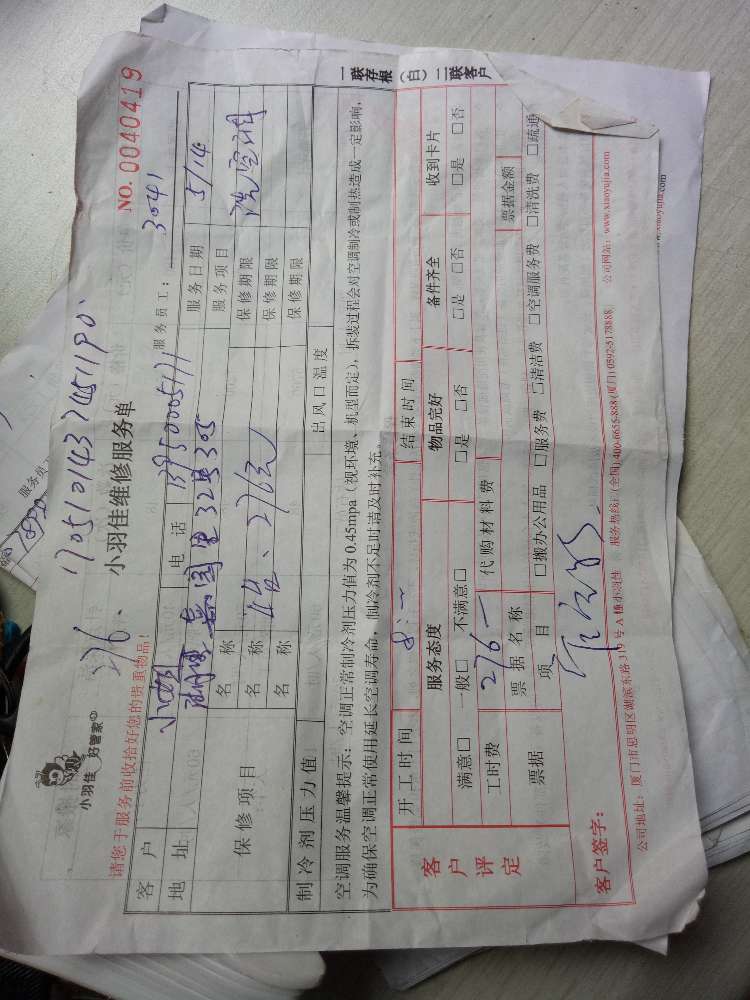 小羽佳 好管家
276、 170510143745119 0
小羽佳维修服务单
NO. 0040419
请您于服务前收拾好您的贵重物品！
服务员工： 3041
客户 电话 13950005171 服务日期 5/14
地址 32号305 服务项目 洗空调
保修项目 名称 保修期限
名称 保修期限
名称 保修期限
制冷剂压力值 出风口温度
空调服务温馨提示：空调正常制冷剂压力值为0.45mpa（视环境、机型而定），拆装过程会对空调制冷或制热造成一定影响，
为确保空调正常使用延长空调寿命，制冷剂不足时请及时补充。
一联存根（白）二联客户
客户评定
开工时间 8: 结束时间
服务态度 物品完好 备件齐全 收到卡片
满意□ 一般□ 不满意□ □是 □否 □是 □否 □是 □否
工时费 276 代购材料费
票据 票据名称 票据金额
项目 □搬办公用品 □服务费 □清洁费 □空调服务费 □清洗费 □疏通
客户签字：
公司地址：厦门市思明区湖滨东路319号A幢小羽佳 服务热线：(全国)400-6655-888(厦门)0592-5178888 公司网站：www.xiaoyujia.com